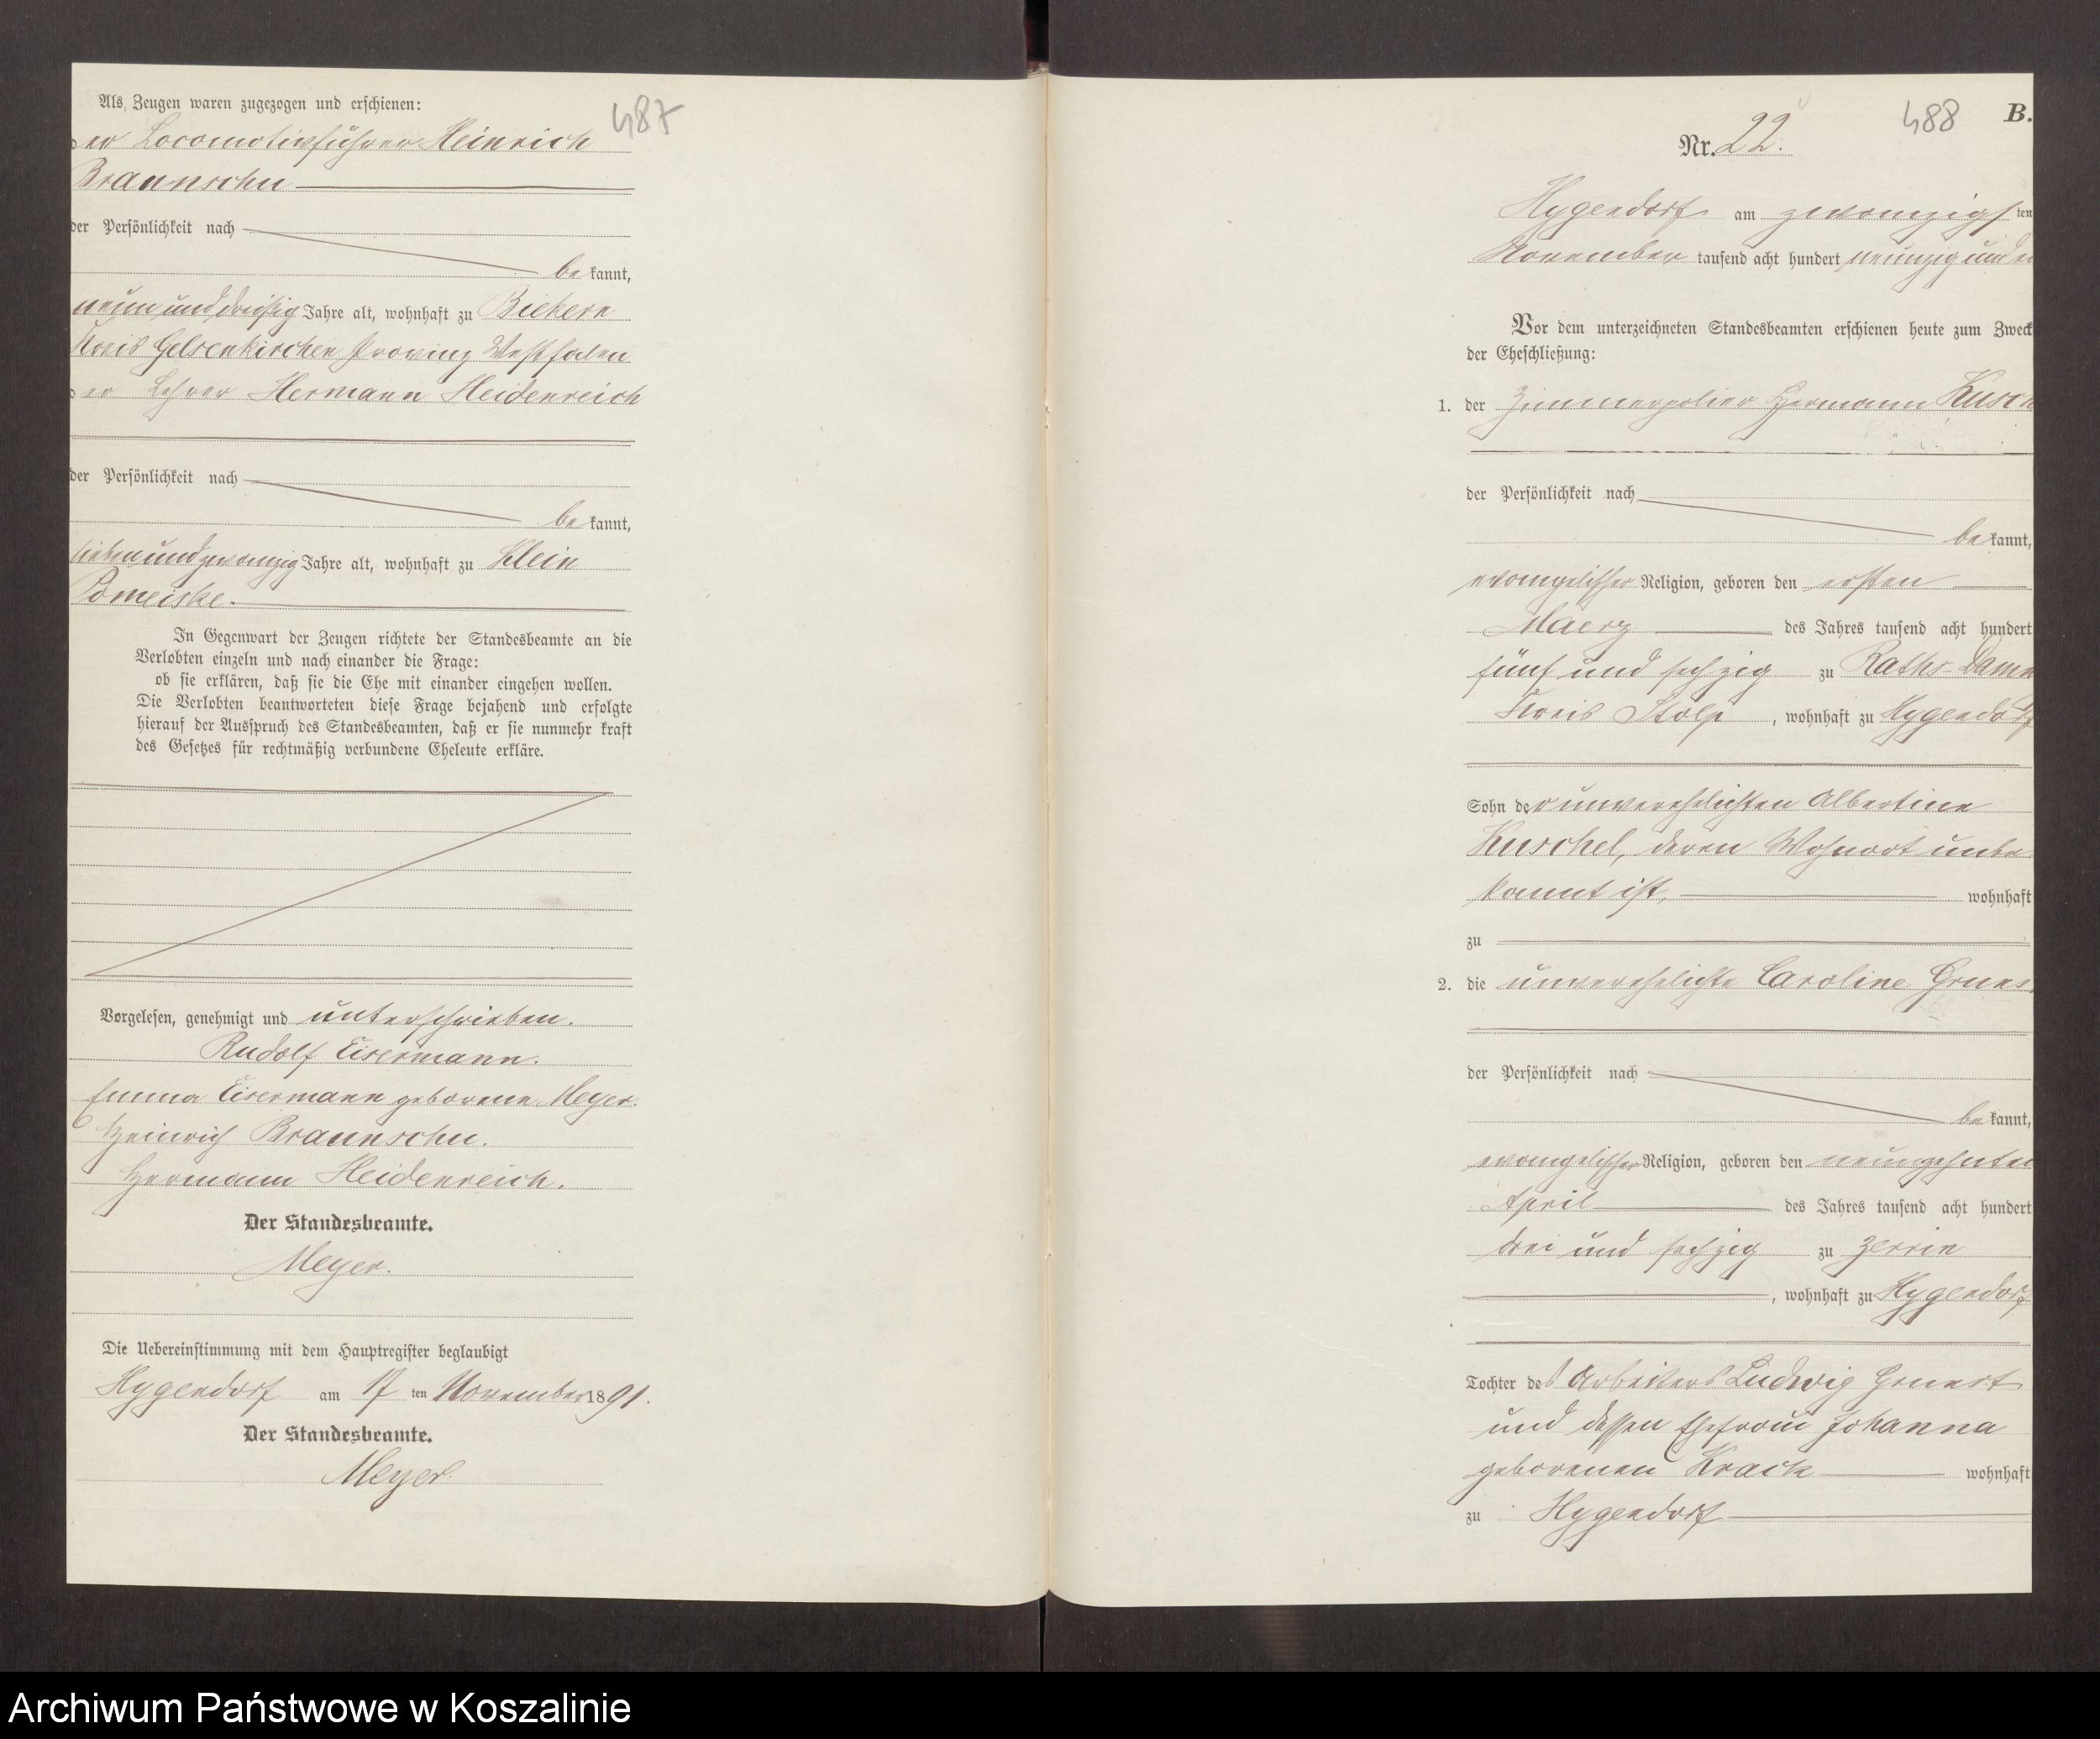 487
Als Zeugen waren zugezogen und erschienen:
der Locomotivführer Heinrich
Braunschu
der Persönlichkeit nach
be kannt,
neun und dreißig Jahre alt, wohnhaft zu Bickern
Kreis Gelsenkirchen Provinz Westfalen
der Lehrer Hermann Heidenreich
der Persönlichkeit nach
be kannt,
sieben und zwanzig Jahre alt, wohnhaft zu Klein
Pomeiske.
In Gegenwart der Zeugen richtete der Standesbeamte an die
Verlobten einzeln und nach einander die Frage:
ob sie erklären, daß sie die Ehe mit einander eingehen wollen.
Die Verlobten beantworteten diese Frage bejahend und erfolgte
hierauf der Ausspruch des Standesbeamten, daß er sie nunmehr kraft
des Gesetzes für rechtmäßig verbundene Eheleute erkläre.
Vorgelesen, genehmigt und unterschrieben.
Rudolf Eisermann.
Emma Eisermann geborene Meyer.
Heinrich Braunschu.
Hermann Heidenreich.
Der Standesbeamte.
Meyer.
Die Uebereinstimmung mit dem Hauptregister beglaubigt
Hygendorf am 17 ten November 1891.
Der Standesbeamte.
Meyer.
488
B.
Nr. 22.
Hygendorf am zwanzigsten
November tausend acht hundert neunzig und ei
Vor dem unterzeichneten Standesbeamten erschienen heute zum Zweck
der Eheschließung:
1. der Zimmerpolier Hermann Kusch
der Persönlichkeit nach
be kannt,
evangelischer Religion, geboren den ersten
Maerz des Jahres tausend acht hundert
fünf und sechzig zu Raths-Damn
Kreis Stolp, wohnhaft zu Hygendorf
Sohn der unverehelichten Albertine
Kuschel, deren Wohnort unbe
kannt ist, wohnhaft
zu
2. die unverehelichte Caroline Grunes
der Persönlichkeit nach
be kannt,
evangelischer Religion, geboren den neunzehnten
April des Jahres tausend acht hundert
drei und sechzig zu Zerrin
, wohnhaft zu Hygendorf
Tochter des Arbeiters Ludwig Grunest
und dessen Ehefrau Johanna
geborenen Krack wohnhaft
zu Hygendorf
Archiwum Państwowe w Koszalinie